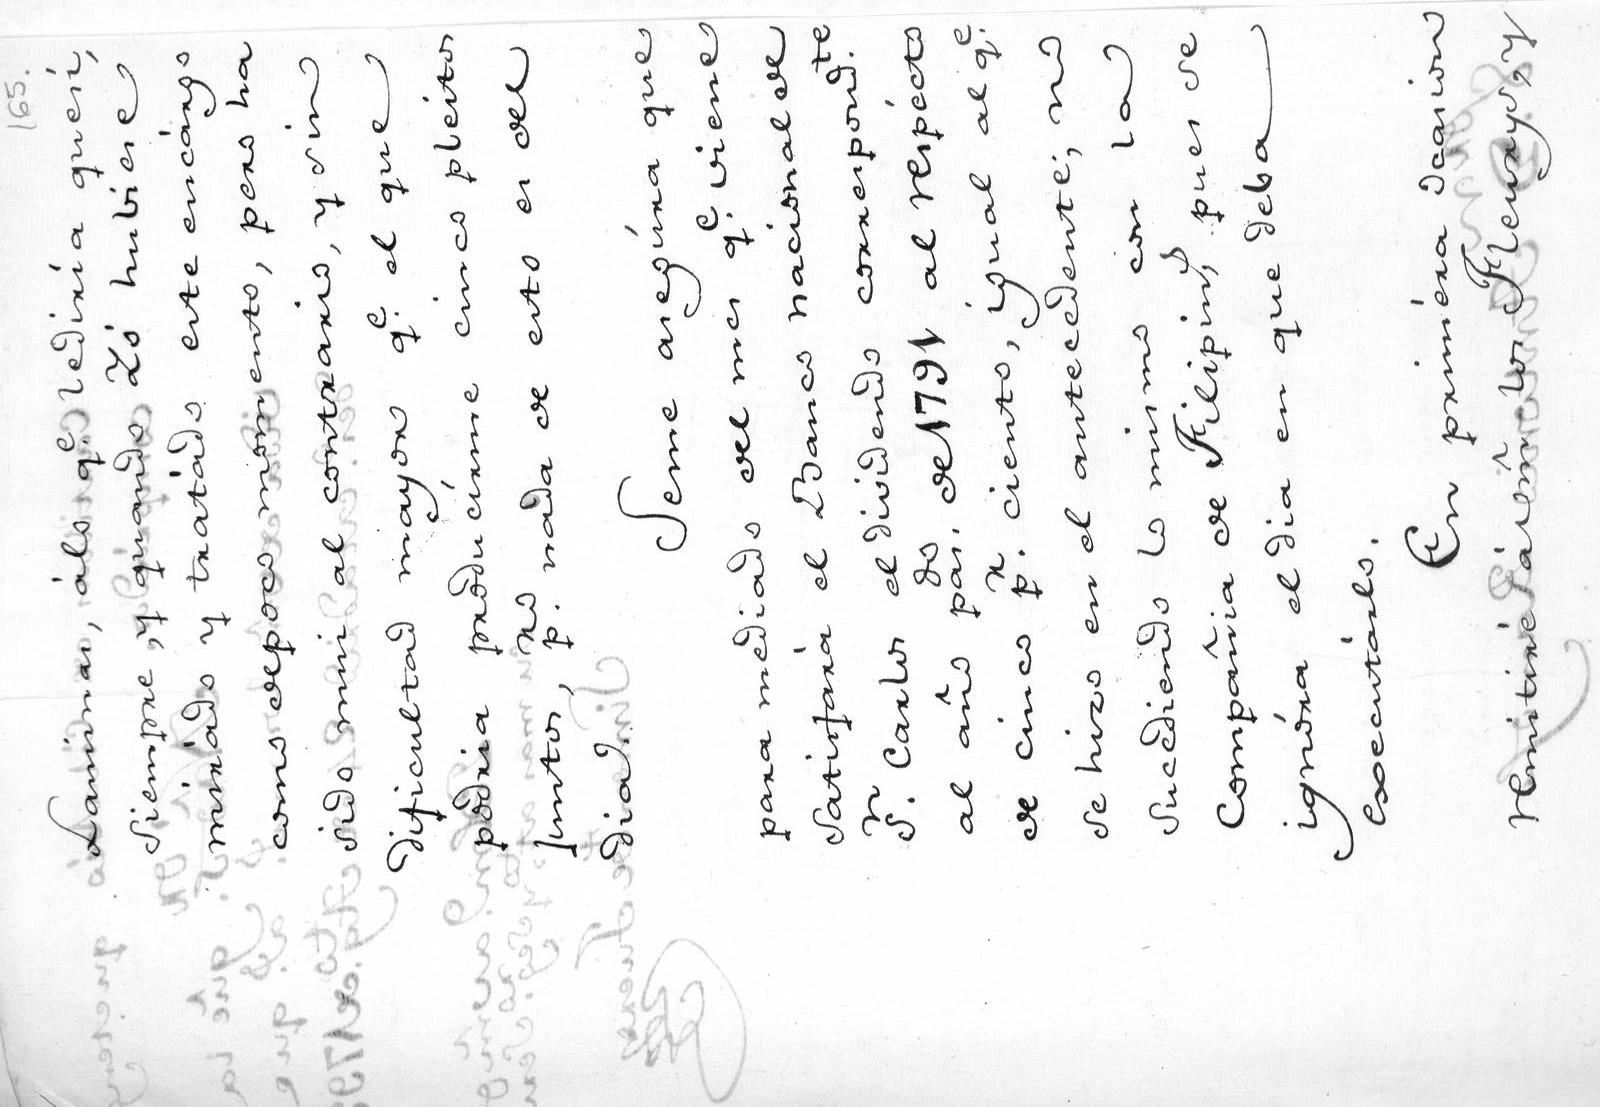 165.
Laminas, álo q.e ledixia queiì,
siempre, y quando Lo hubiese
mirádo y tratádo este encárgo
como depoco momento, pero ha
sido mui al contrario, y sin
dificultad mayor q.e el que
podria prodúcirme cinco pleitos
Juntos, p.ro nada de esto es del
dia.
Seme asegúra que
para mediado del mes q.e viene
satisfará el Banco nacional de
S.n Carlos el dividendo correspond.te
al año pas.do de 1791 al respécto
de cinco p.r ciento, igual al q.e
se hizo en el antecedente; no
sucediendo lo mismo con la
Compañia de Filipin.s, pues se
ignóra el dia en que deba
executárlo.
En priméra ocasion
remitiré á los Señ.r Fleurys, y